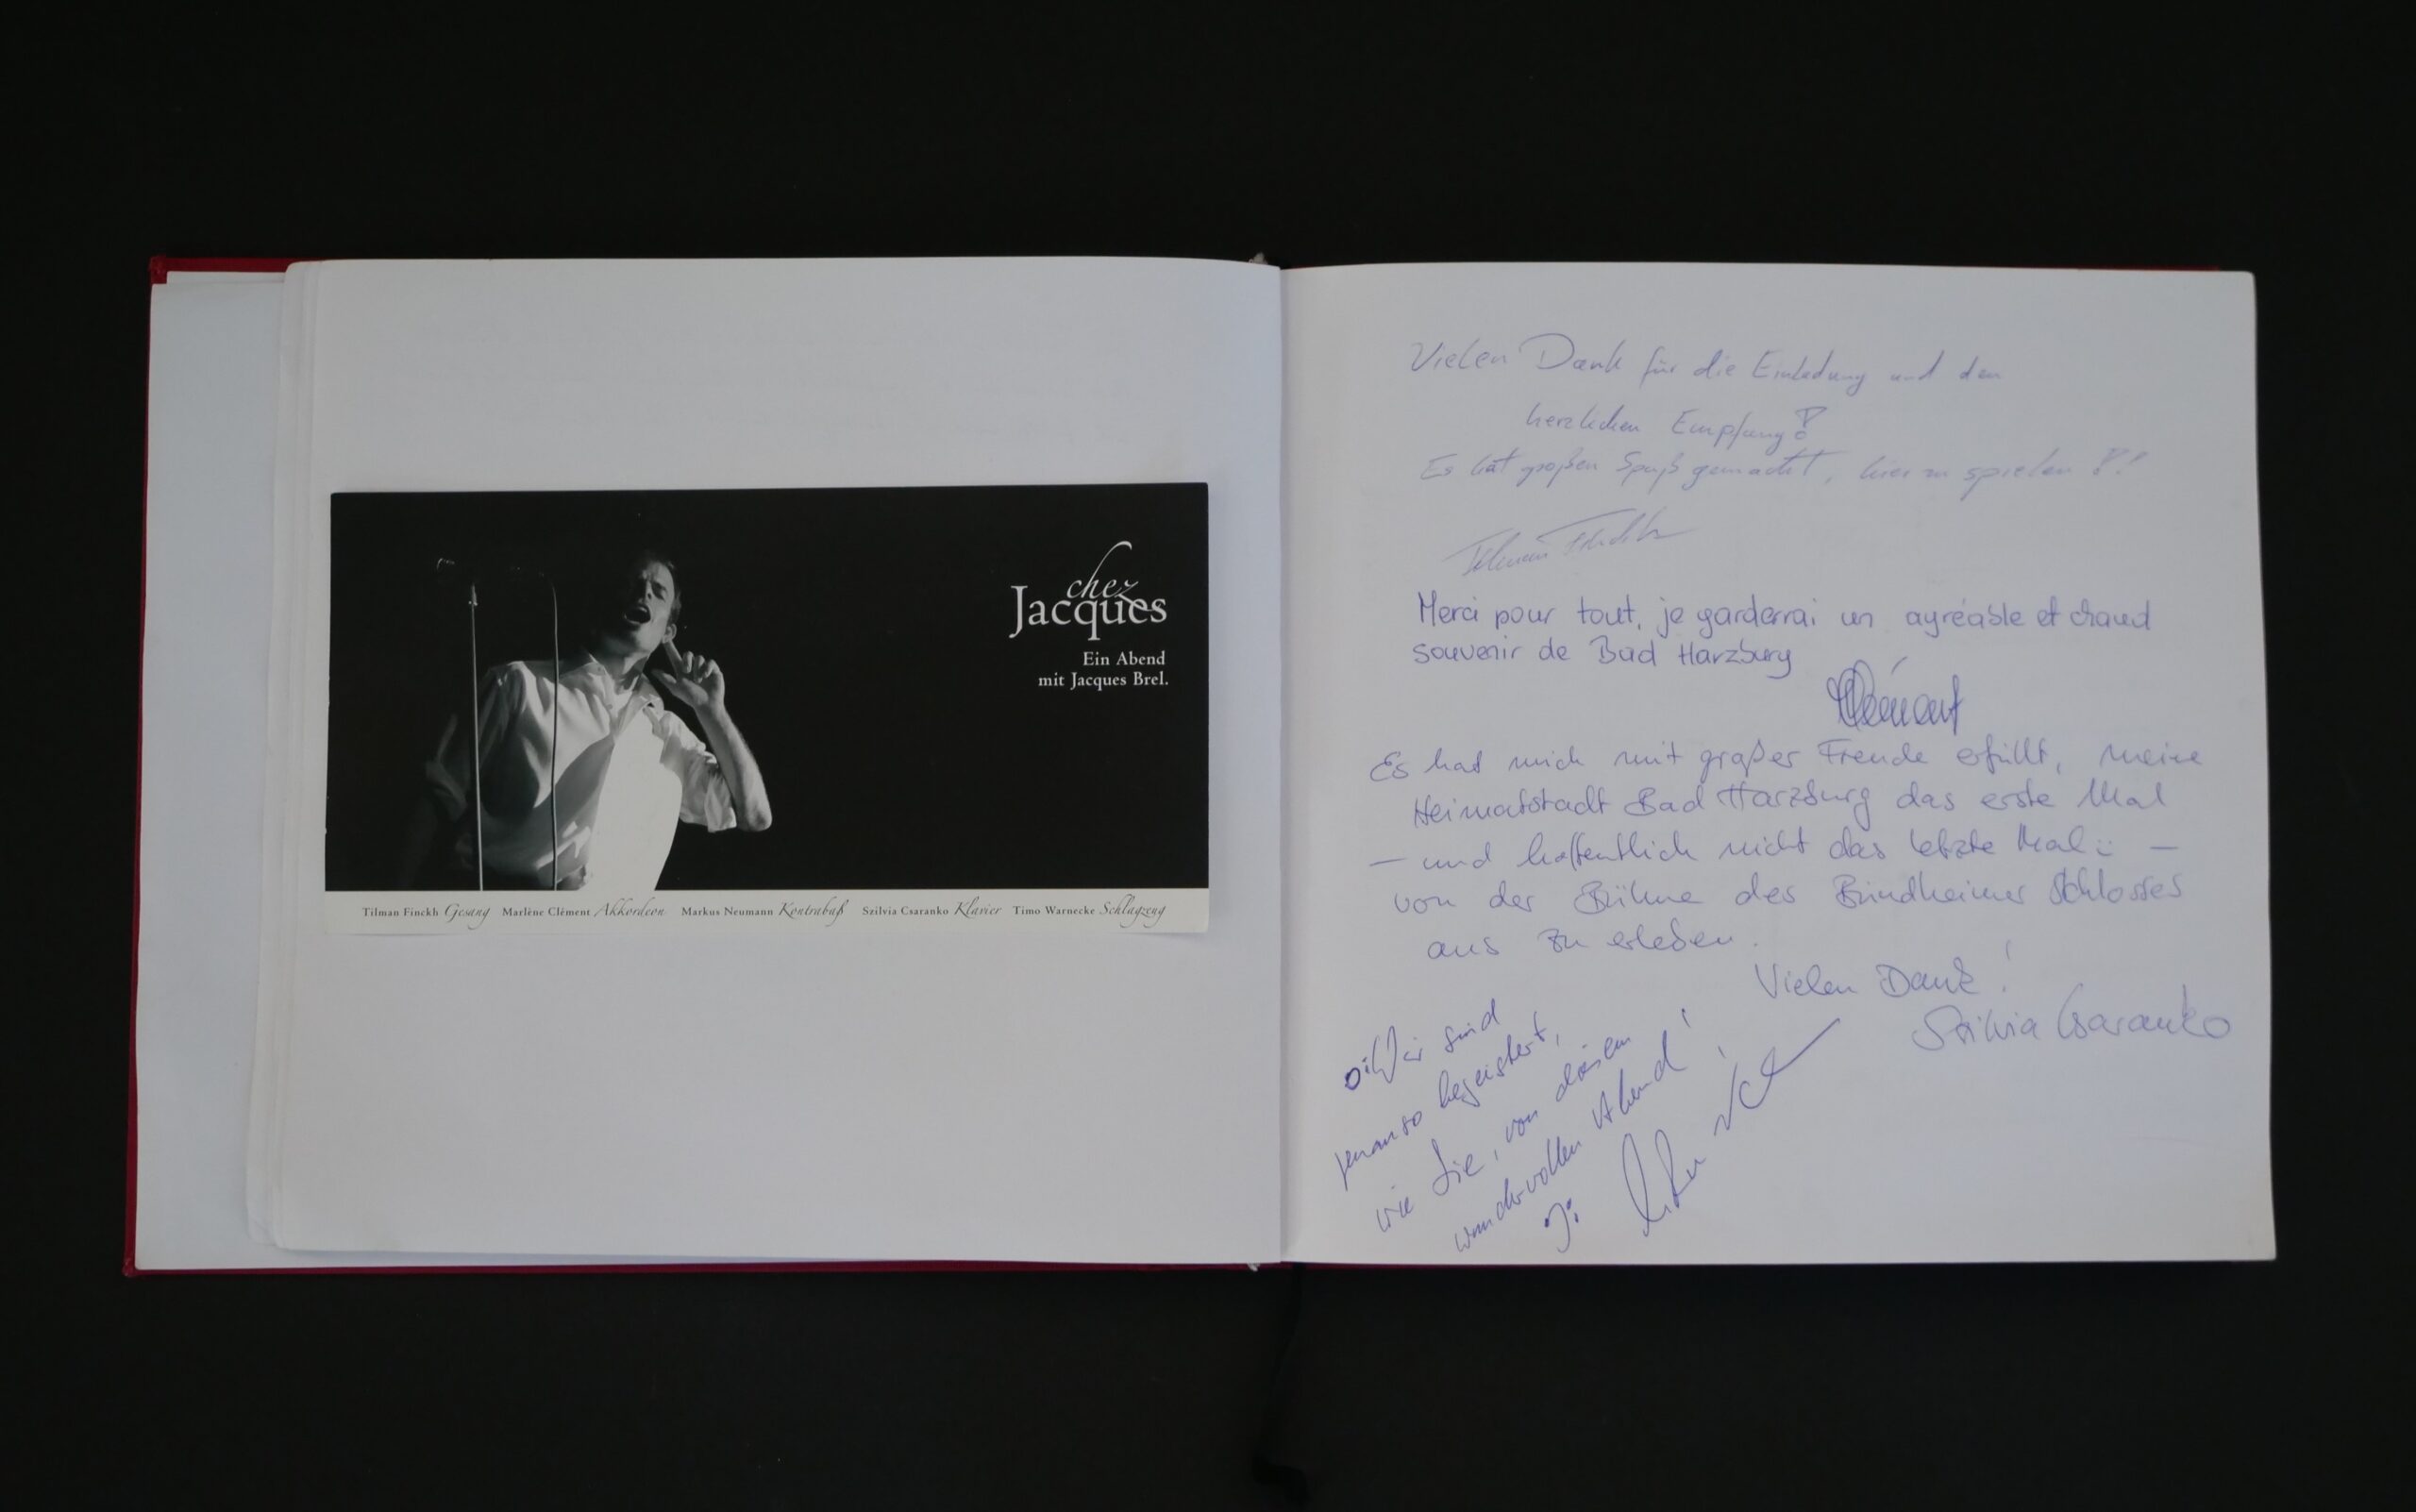 chez
Jacques
Ein Abend
mit Jacques Brel.
Tilman Finckh Gesang Marlène Clément Akkordeon Markus Neumann Kontrabaß Szilvia Csaranko Klavier Timo Warnecke Schlagzeug
Vielen Dank für die Einladung und den
herzlichen Empfang!
Es hat großen Spaß gemacht, hier zu spielen!!
Tilman Finckh
Merci pour tout, je garderrai un agréable et chaud
souvenir de Bad Harzburg
MClément
Es hat mich mit großer Freude erfüllt, meine
Heimatstadt Bad Harzburg das erste Mal
– und hoffentlich nicht das letzte Mal –
von der Bühne des Bündheimer Schlosses
aus zu erleben.
Vielen Dank!
Szilvia Csaranko
Wir sind
genauso begeistert,
wie Sie, von diesem
wundervollen Abend!